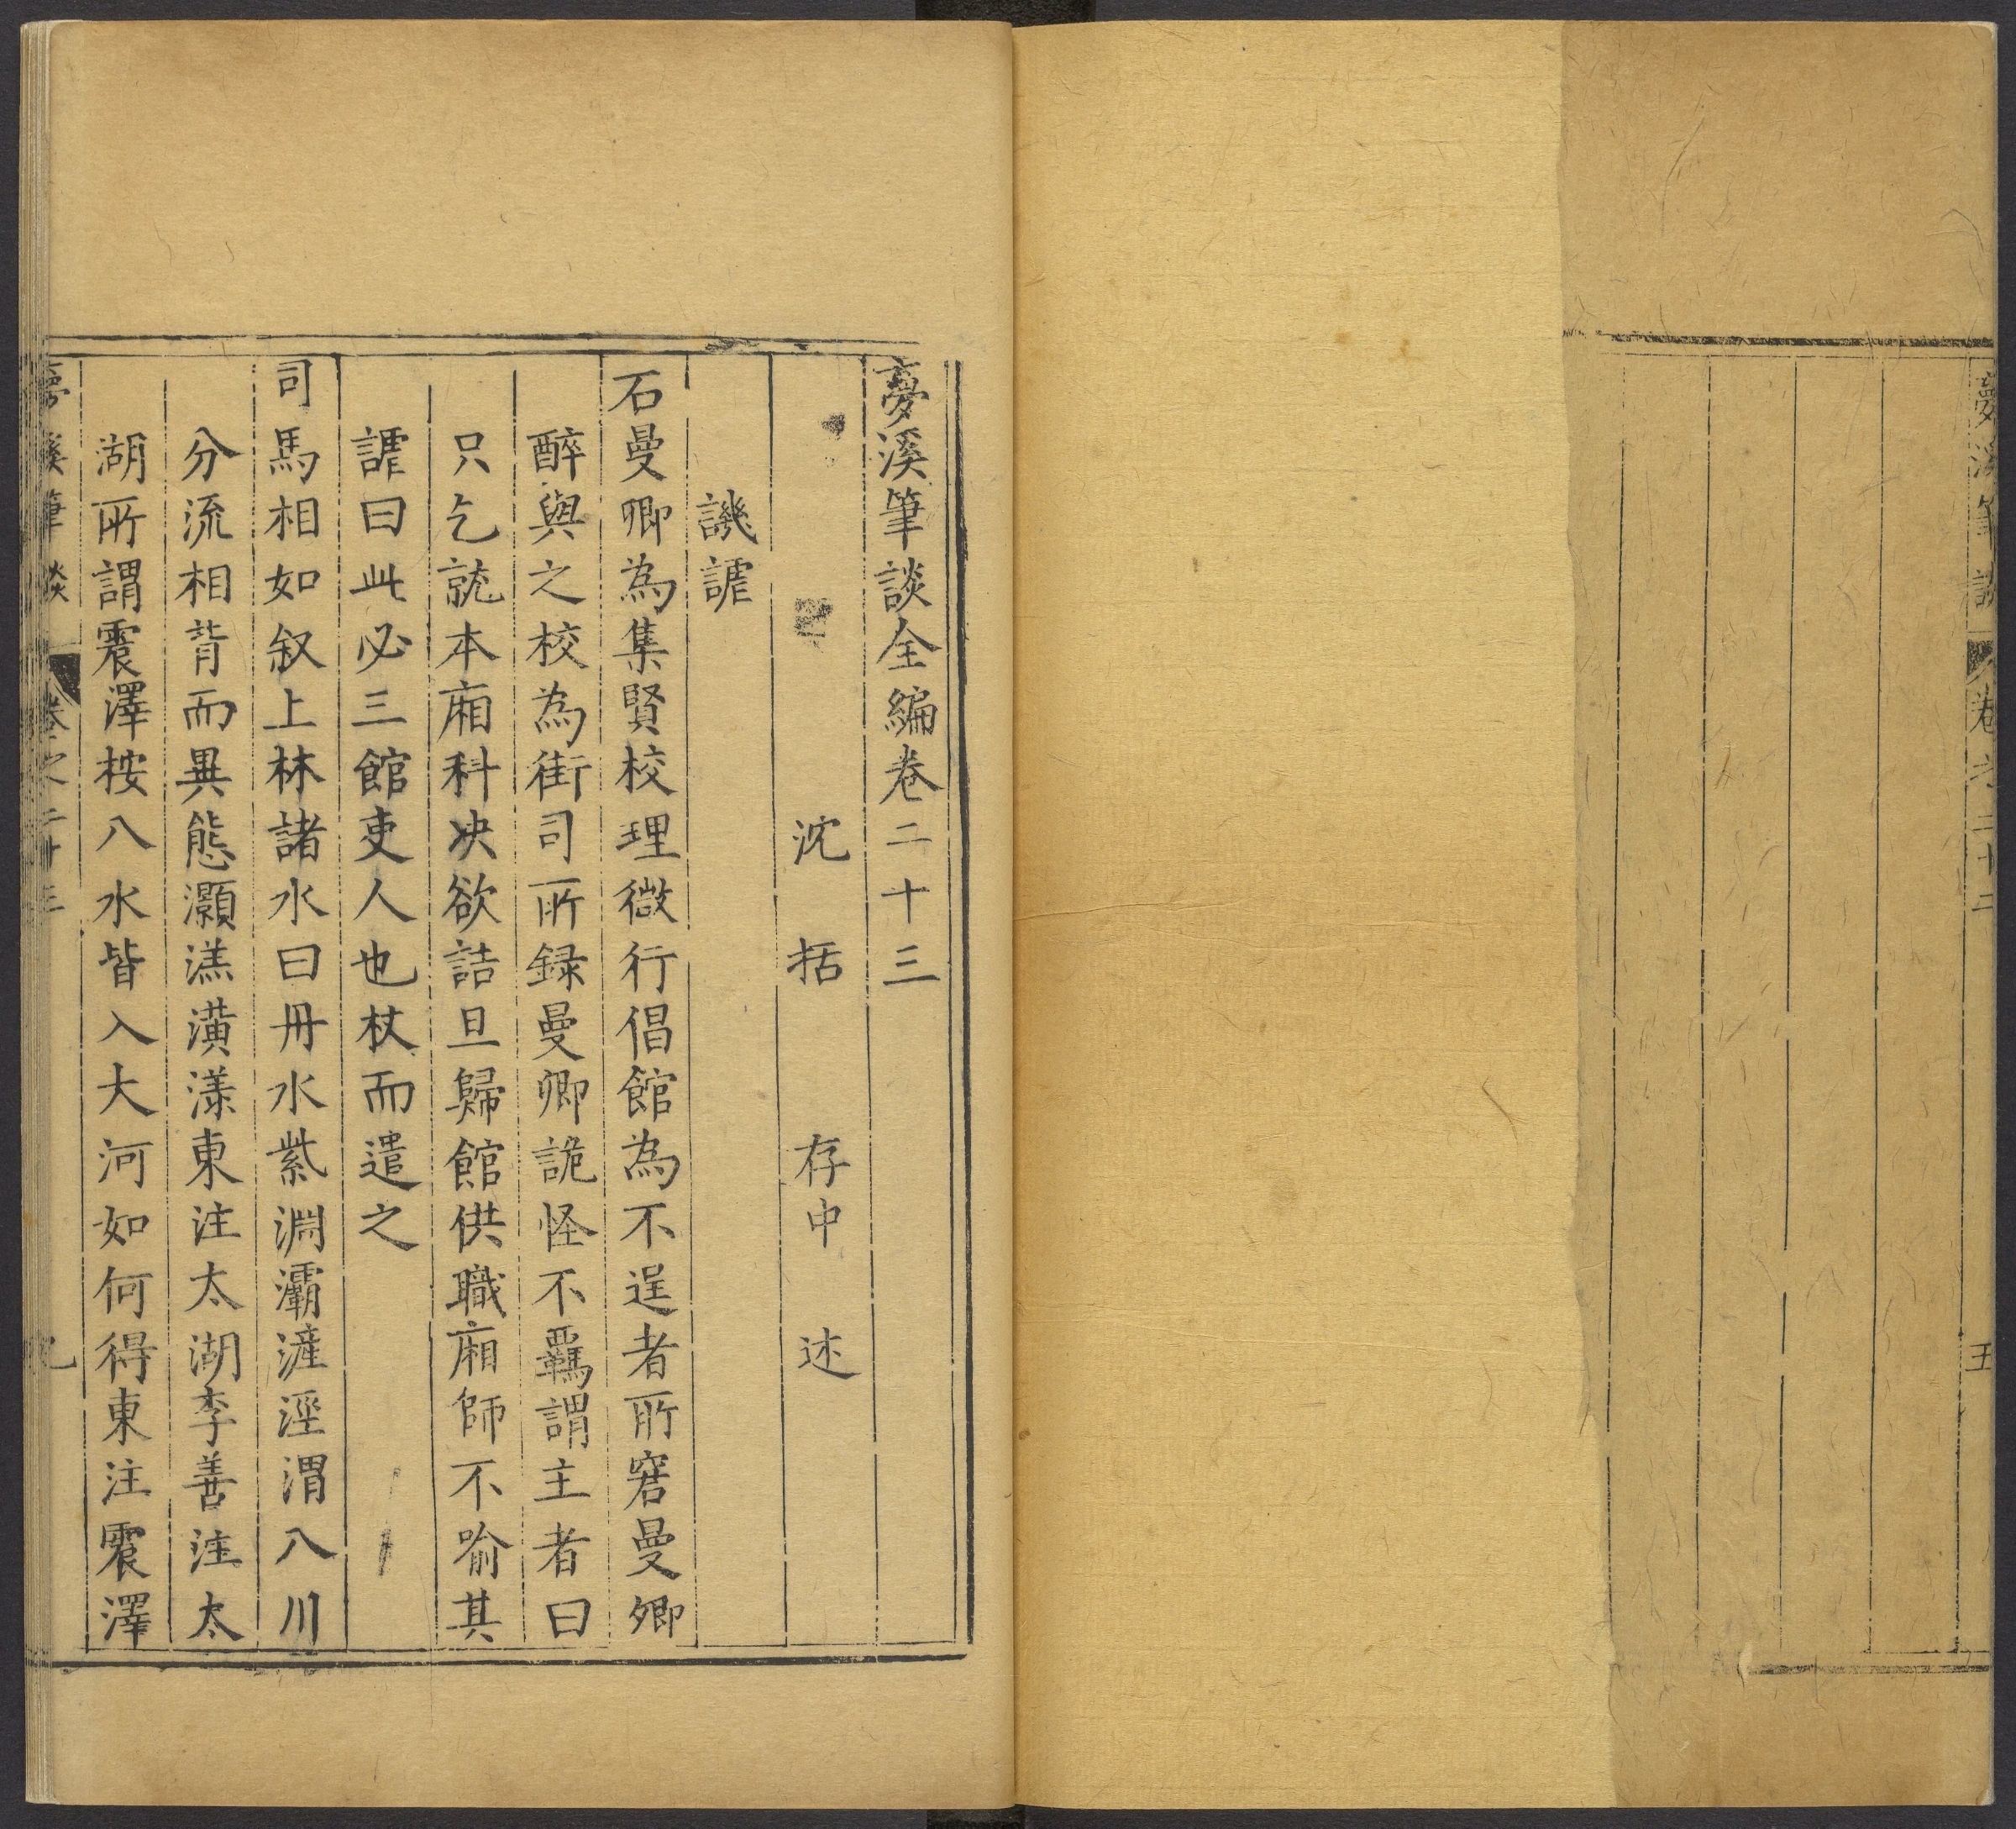 夢溪筆談
卷之二十二
五
夢溪筆談全編卷二十三
沈括存中述
譏謔
石曼卿為集賢校理微行倡館為不逞者所窘曼卿
醉與之校為街司所録曼卿詭怪不羈謂主者曰
只乞就本廂科决欲詰旦歸館供職廂師不喻其
謔曰此必三館吏人也杖而遣之
司馬相如叙上林諸水曰丹水紫淵灞滻涇渭八川
分流相背而異態灝溔潢漾東注太湖李善注太
湖所謂震澤按八水皆入大河如何得東注震澤
夢溪筆談
卷之二十三